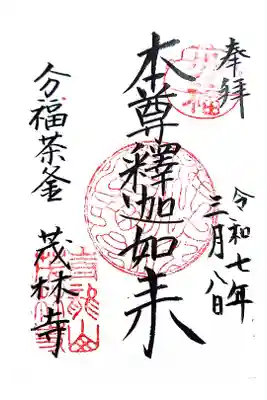 奉拝
令和七年
三月八日
本尊釋迦如来
分福茶釜
茂林寺